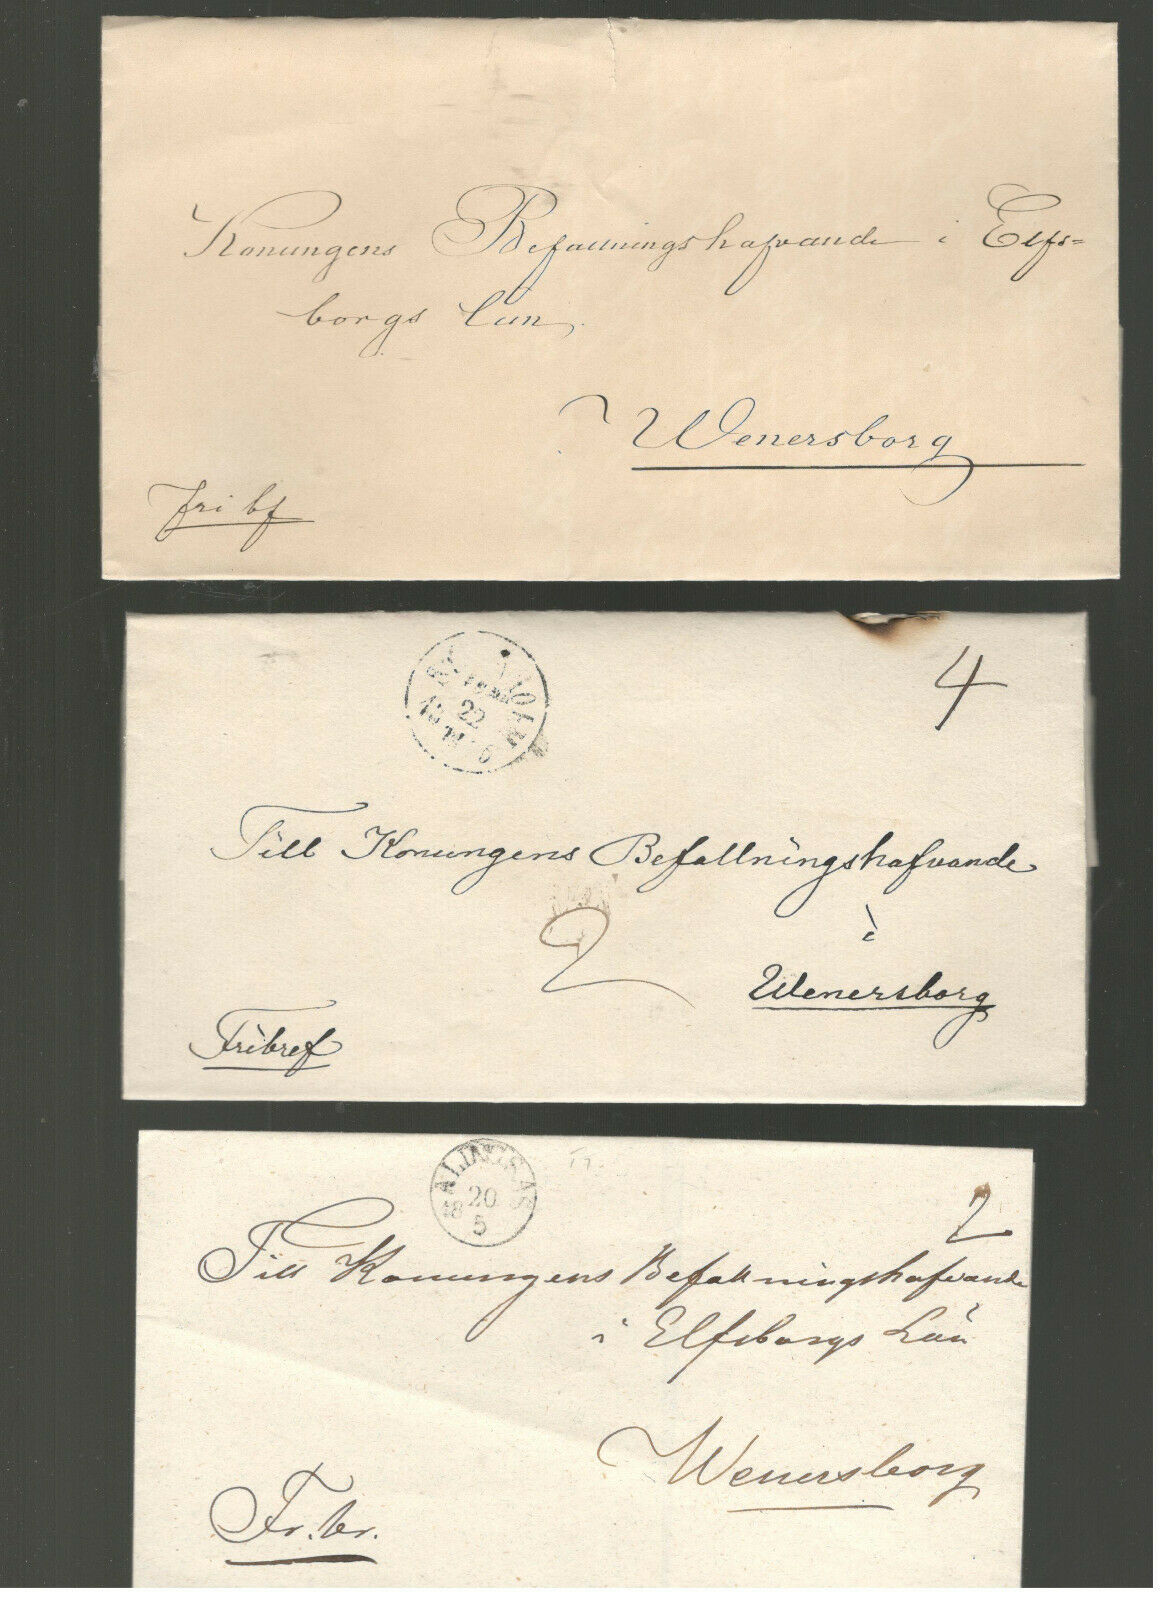 Konungens Befallningshafvande i Elfs=
borgs Län,
Wenersborg
Fri bf
22
4
Till Konungens Befallningshafvande
i
2
Wenersborg
Fribref
ALINGSÅS
20
5
18
2
Till Konungens Befallningshafvande
i Elfsborgs Län
Wenersborg
Fr.br.